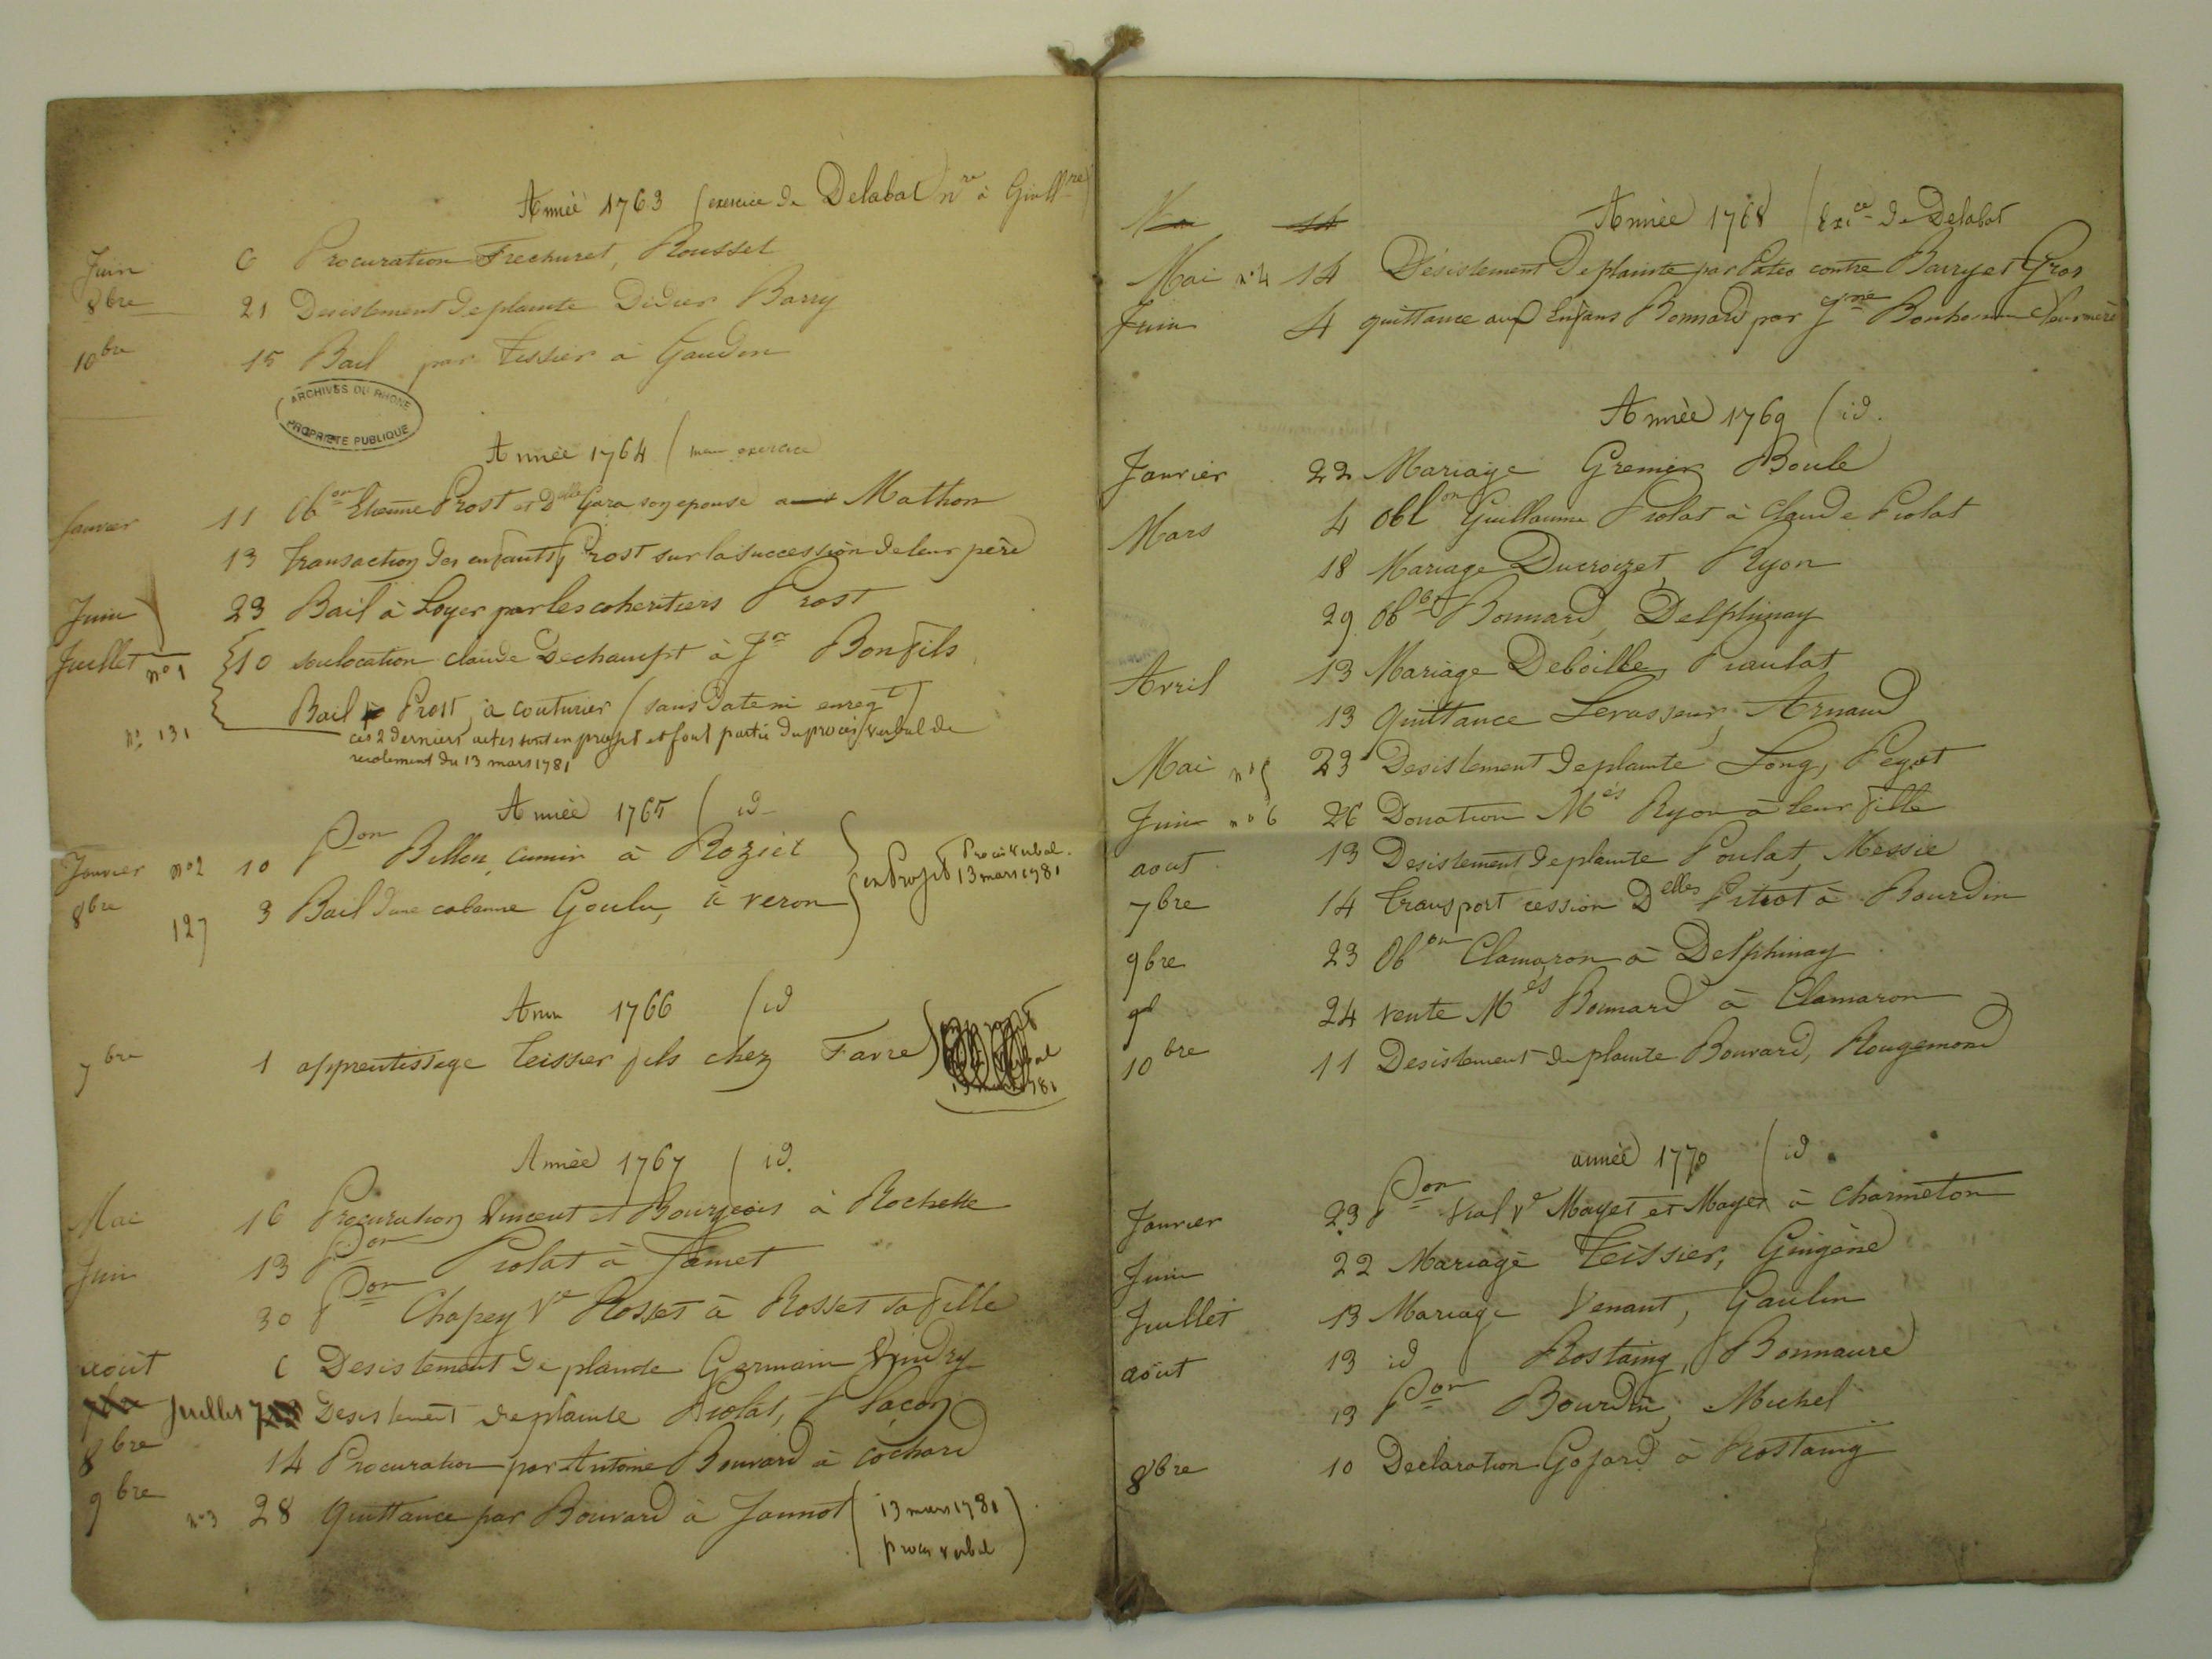 Année 1763 (exercice de Delabat nre à Guillre
Juin 6 Procuration Frechuret, Rousset
8bre 21 Desistement de plainte Didier Barry
10bre 15 Bail par Tissier à Gaudon
ARCHIVES DU RHONE
PROPRIETE PUBLIQUE
Année 1764 (meme exercice
Janvier 11 Obon Etienne Prost et Delle Gara son epouse a Mathon
13 Transaction des enfants Prost sur la succession de leur père
Juin 23 Bail à Loyer par les coheritiers Prost
Juillet no 1 10 soulocation claude Dechampt à Jn Bonfils
no 131 Bail Prost, à couturier (sans date ni enregt)
ces 2 derniers actes sont en projet et font partie du procès verbal de
recolement du 13 mars 1781
Année 1765 (id
Janvier no 2 10 Pon Billon, cumin à Roziet
en Projet Procès verbal. 13 mars 1781
8bre 127 3 Bail d'une cabanne Goulu, à veron
Ann 1766 (id
7bre 1 apprentissage Teissier fils chez Favre
Année 1767 (id.
Mai 16 Procuration Vincent et Bourgeois à Rochette
Juin 13 Pon Piolat à Jamet
30 Pon Chapey Ve Rosset à Rosset sa fille
août 6 Desistement de plainte Germain Vindry
Juillet 7 Desistement de plainte Piolat, Placon
8bre 14 Procuration par Antoine Bouvard à Cochard
9bre no 3 28 quittance par Bouvard à Jannot (13 mars 1781
procès verbal)
Année 1768 (Exice de Delabat
Mai no 4 14 Désistement de plainte par contre Barry et Gros
Juin 4 quittance aux Enfans Bonnard par Jne Bonhomme leur mère
Année 1769 (id.
Janvier 22 Mariage Grenier Boule
Mars 4 Oblon Guillaume Piolat à Claude Piolat
18 Mariage Ducroizet, Ryon
29 Obon Bonnard, Delphinay
Avril 13 Mariage Deboille, Piaulat
13 quittance Levasseur, Arnaud
Mai no 5 23 Desistement de plainte Long, Peyot
Juin no 6 26 Donation Més Ryon à leur fille
aout 13 Desistement de plainte Poulat, Messie
7bre 14 Transport cession Delles Pitiot à Bourdin
9bre 23 Obon Clamaron à Delphinay
9d 24 vente Més Bonnard à Clamaron
10bre 11 Desistement de plainte Bouvard, Rougemond
année 1770 (id
Janvier 23 Pon Vial Ve Mayet et Mayet à Charmeton
Juin 22 Mariage Teissier, Guigène
Juillet 13 Mariage Venant, Gaulin
août 13 id Rostaing, Bonnaure
13 Pon Bourdin, Michel
8bre 10 Declaration Gojard à Rostaing